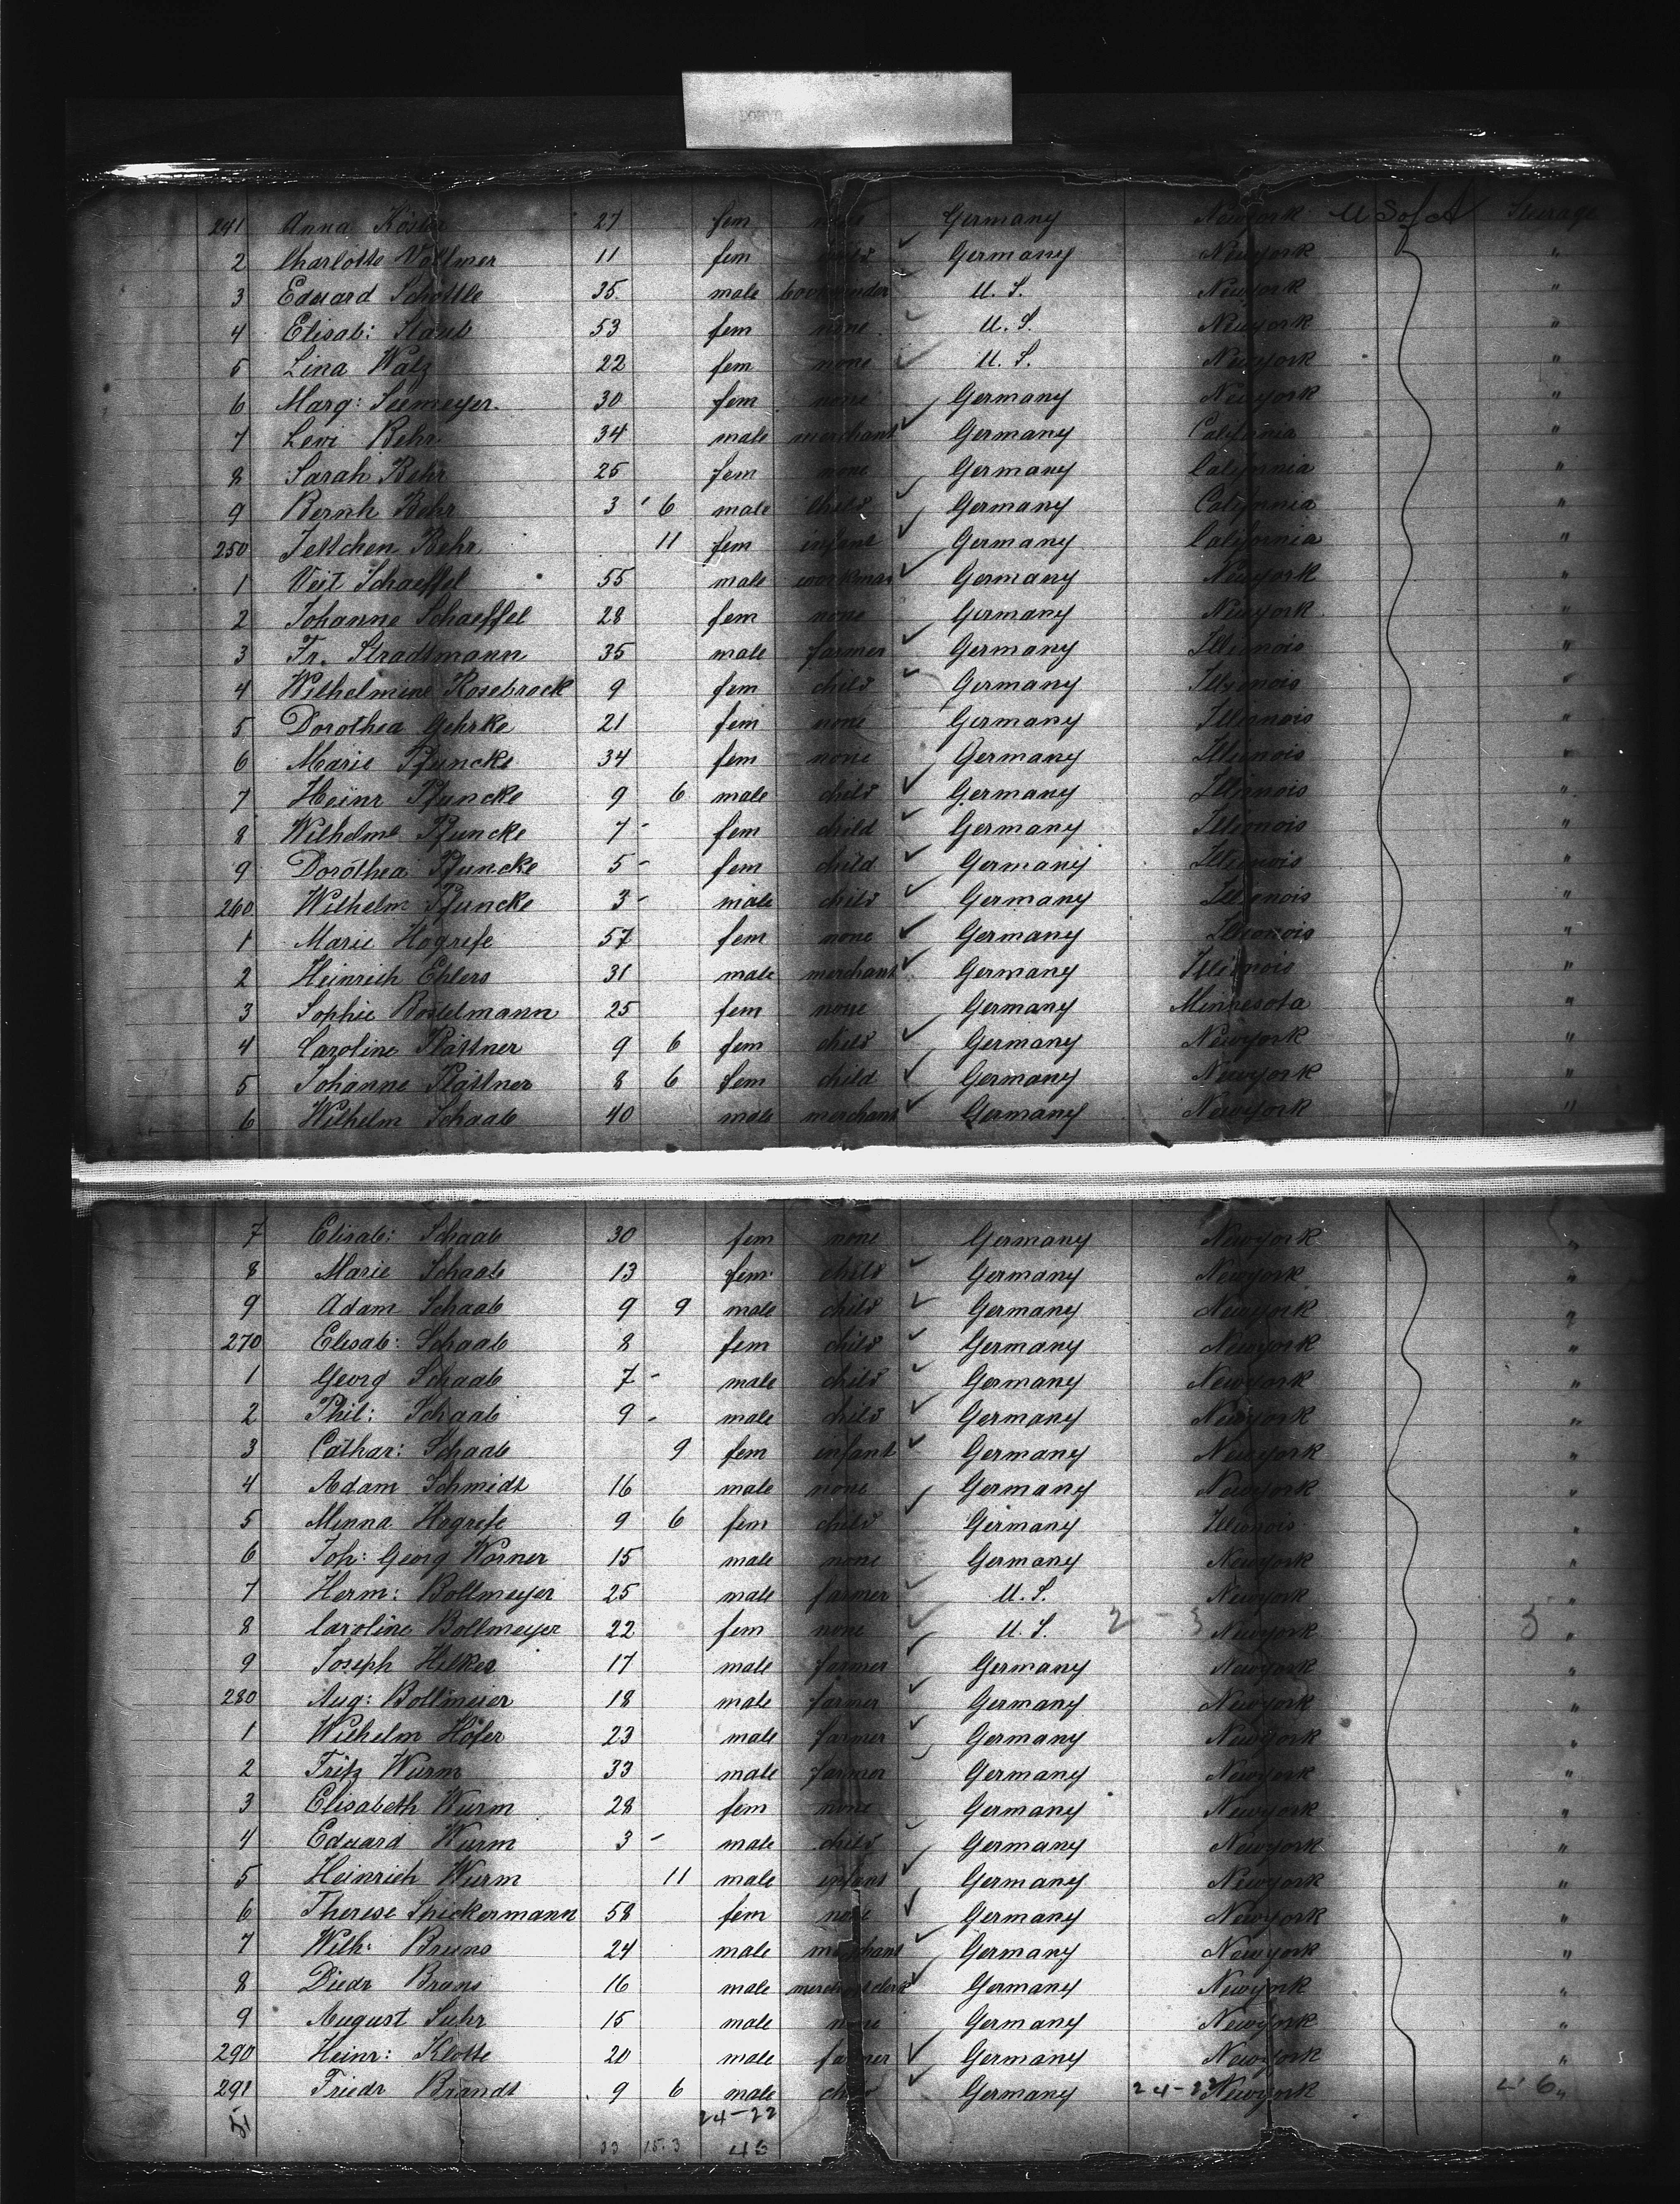 241 Anna Köster 27 fem none Germany Newyork U S of A Steerage
2 Charlotte Vollmer 11 fem child Germany Newyork "
3 Eduard Schottle 35 male bookbinder U. S. Newyork "
4 Elisab: Staub 53 fem none U. S. Newyork "
5 Lina Walz 22 fem none U. S. Newyork "
6 Marg: Seemeyer 30 fem none Germany Newyork "
7 Levi Behr 34 male merchant Germany California "
8 Sarah Behr 25 fem none Germany California "
9 Bernh Behr 3 6 male child Germany California "
250 Jettchen Behr 11 fem infant Germany California "
1 Veit Schaeffel 55 male workman Germany Newyork "
2 Johanne Schaeffel 28 fem none Germany Newyork "
3 Fr. Stradtmann 35 male farmer Germany Illinois "
4 Wilhelmine Rosebrock 9 fem child Germany Illinois "
5 Dorothea Gehrke 21 fem none Germany Illinois "
6 Marie Pfuncke 34 fem none Germany Illinois "
7 Heinr Pfuncke 9 6 male child Germany Illinois "
8 Wilhelme Pfuncke 7 - fem child Germany Illinois "
9 Dorothea Pfuncke 5 - fem child Germany Illinois "
260 Wilhelm Pfuncke 3 - male child Germany Illinois "
1 Marie Hogrefe 57 fem none Germany Illinois "
2 Heinrich Ehlers 31 male merchant Germany Illinois "
3 Sophie Bostelmann 25 fem none Germany Minnesota "
4 Caroline Plattner 9 6 fem child Germany Newyork "
5 Johanne Plattner 8 6 fem child Germany Newyork "
6 Wilhelm Schaab 40 male merchant Germany Newyork "
7 Elisab: Schaab 30 fem none Germany Newyork "
8 Marie Schaab 13 fem child Germany Newyork "
9 Adam Schaab 9 9 male child Germany Newyork "
270 Elisab: Schaab 8 fem child Germany Newyork "
1 Georg Schaab 7 - male child Germany Newyork "
2 Phil: Schaab 9 - male child Germany Newyork "
3 Cathar: Schaab 9 fem infant Germany Newyork "
4 Adam Schmidt 16 male none Germany Newyork "
5 Minna Hogrefe 9 6 fem child Germany Illinois "
6 Joh: Georg Werner 15 male none Germany Newyork "
7 Herm: Bollmeyer 25 male farmer U. S. Newyork "
8 Caroline Bollmeyer 22 fem none U. S. 2 - 3 Newyork 5 "
9 Joseph Hilker 17 male farmer Germany Newyork "
280 Aug: Bollmeier 18 male farmer Germany Newyork "
1 Wilhelm Höfer 23 male farmer Germany Newyork "
2 Fritz Wurm 33 male farmer Germany Newyork "
3 Elisabeth Wurm 28 fem none Germany Newyork "
4 Eduard Wurm 3 - male child Germany Newyork "
5 Heinrich Wurm 11 male infant Germany Newyork "
6 Therese Spickermann 58 fem none Germany Newyork "
7 Wilh: Bruns 24 male merchant Germany Newyork "
8 Diedr Bruns 16 male merchant clerk Germany Newyork "
9 August Suhr 15 male none Germany Newyork "
290 Heinr: Klotte 20 male farmer Germany Newyork "
291 Friedr Brandt 9 6 male child Germany 24-22 Newyork 46 "
51 24-22
33 15.3 46